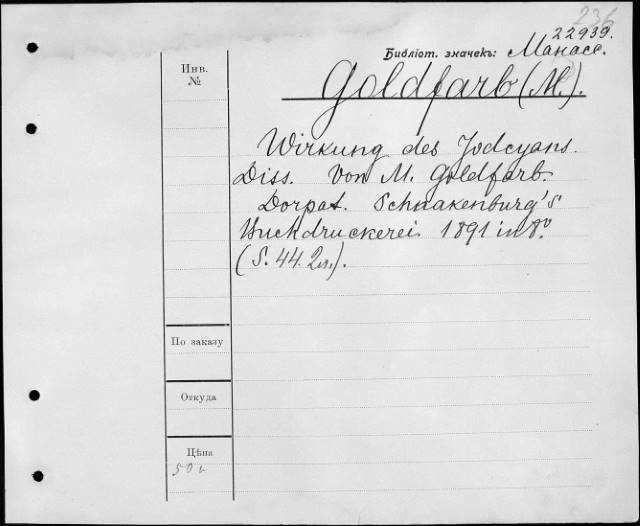 236
22939.
Библіот. значекъ: Манасс.
Инв.
№
Goldfarb (M.).
Wirkung des Jodcyans.
Diss. Von M. Goldfarb.
Dorpat. Schnakenburg's
Buckdruckerei 1891 in 8º.
(S. 44. 2 л.).
По заказу
Откуда
Цѣна
50 к